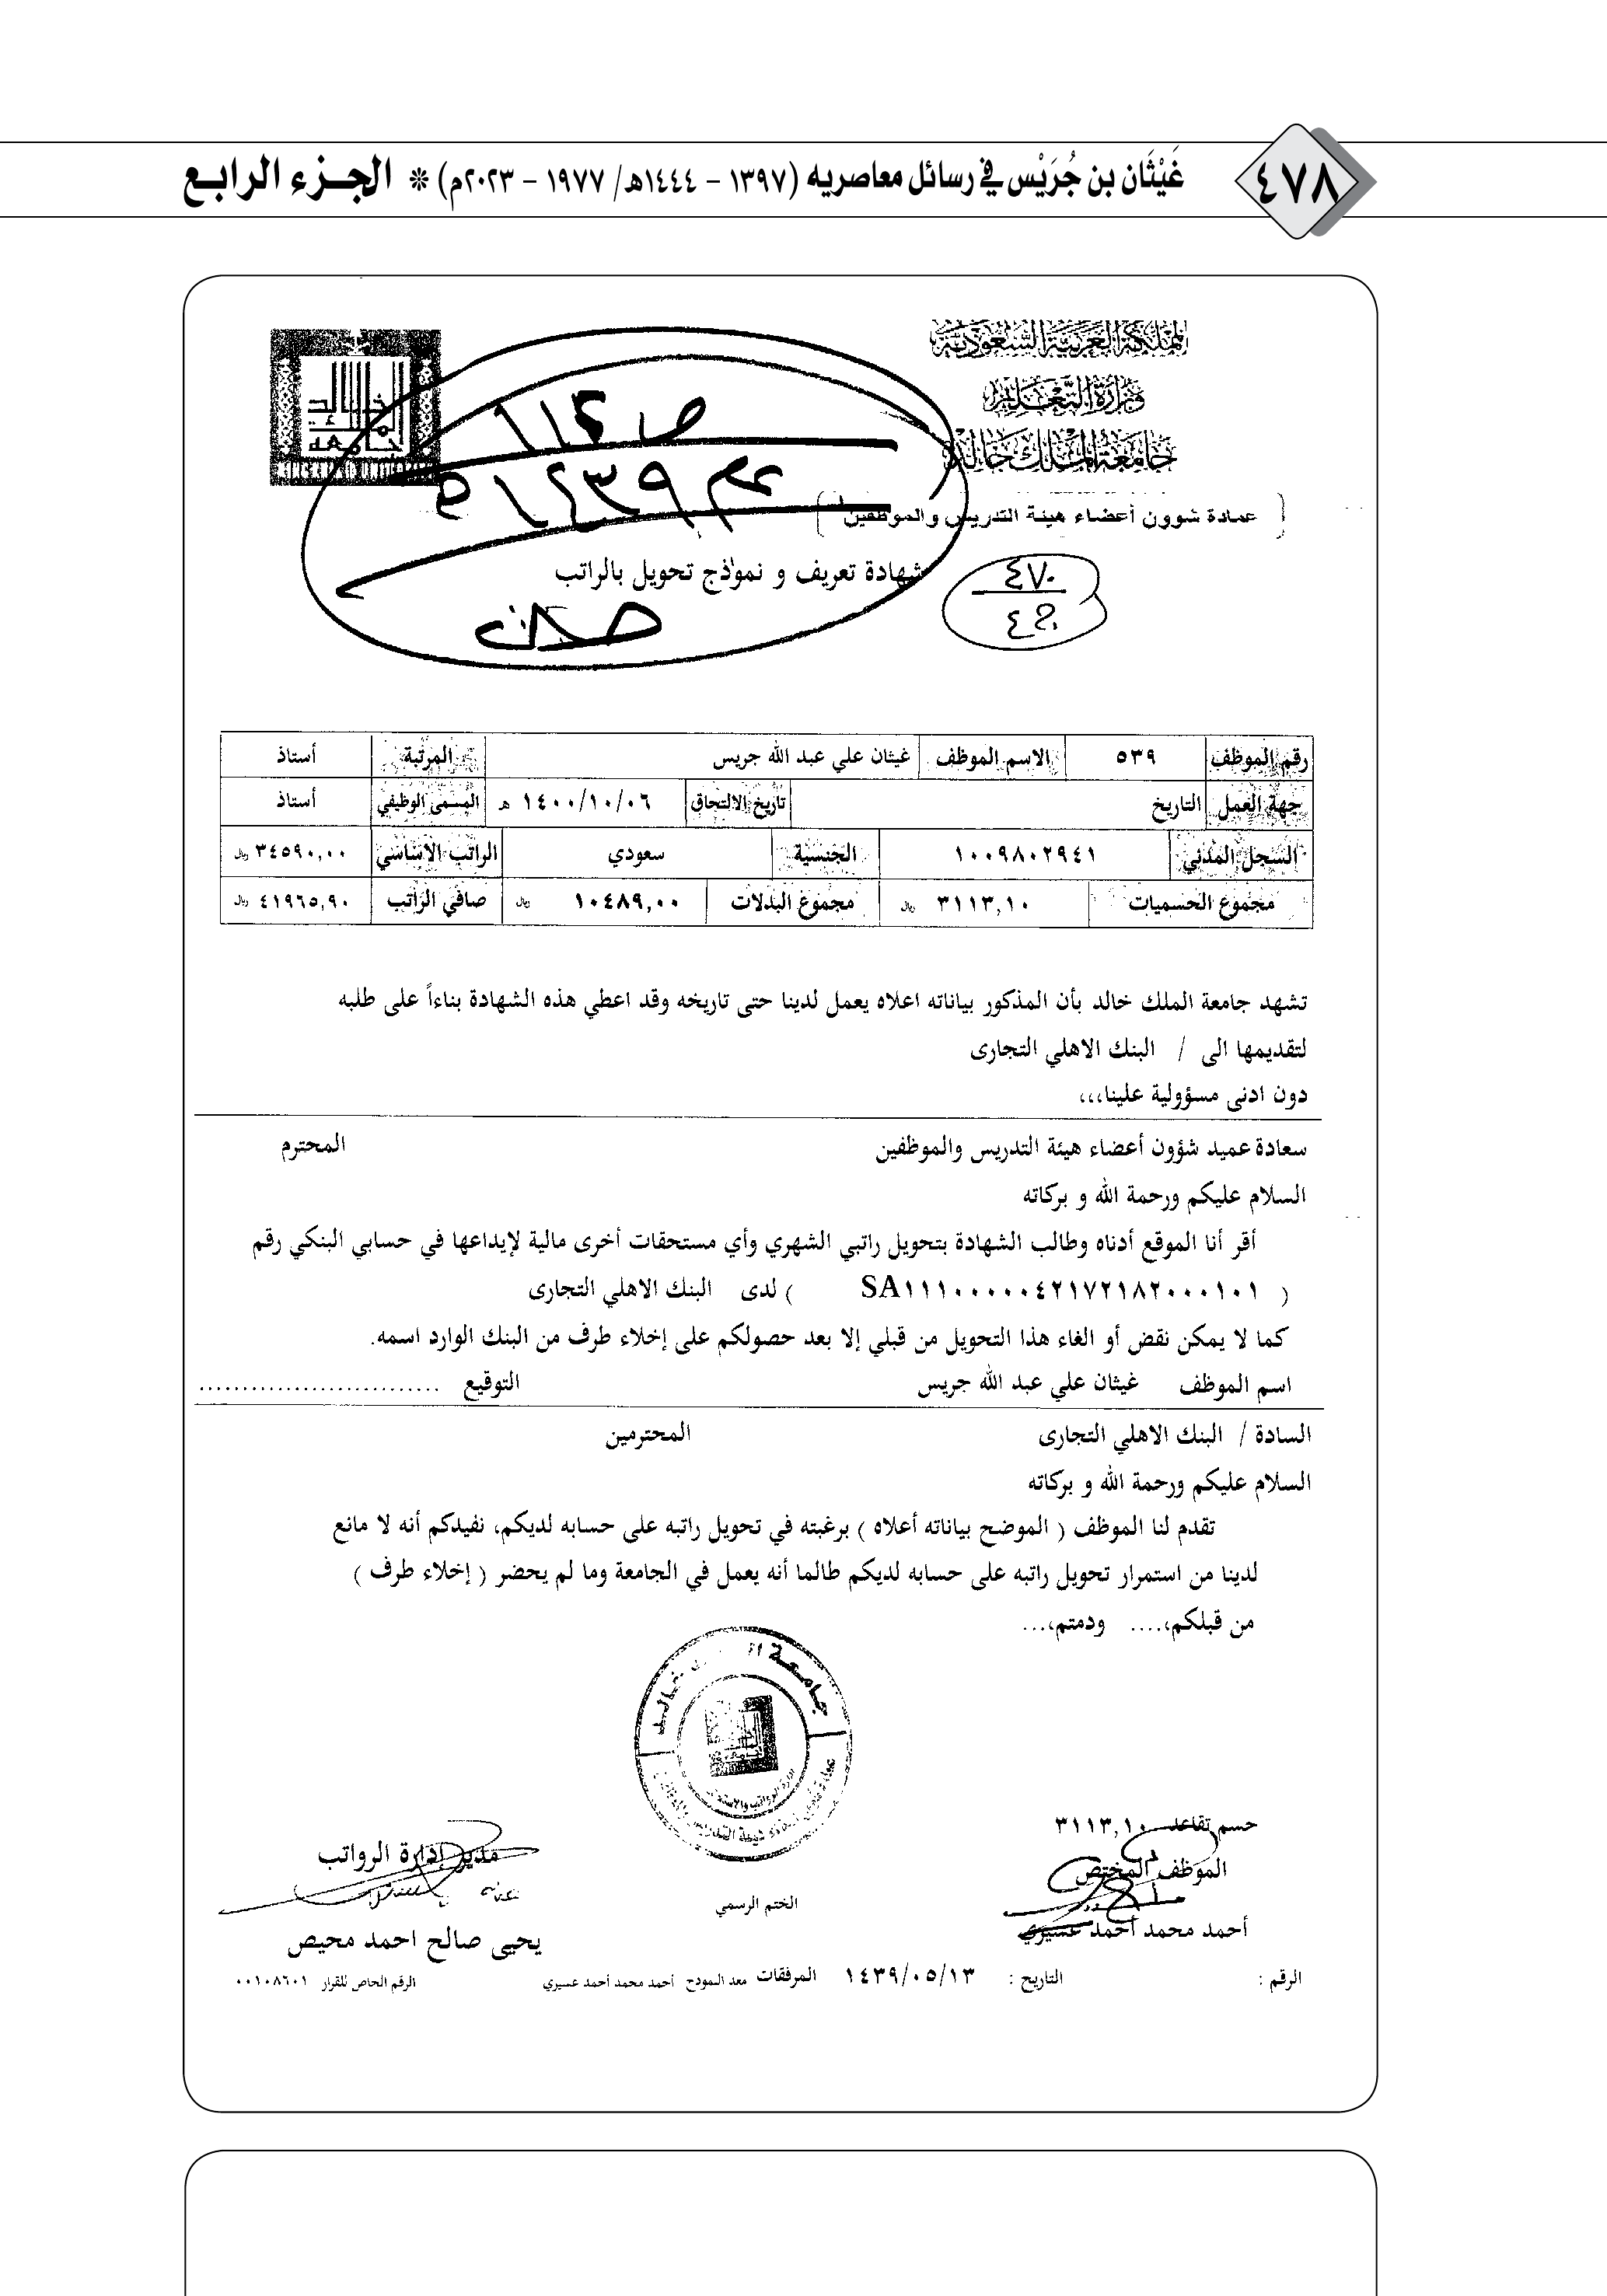 ٤٧٨
غَيْثَان بن جُرَيْس في رسائل معاصريه (١٣٩٧ - ١٤٤٤هـ/ ١٩٧٧ - ٢٠٢٣م) * الجزء الرابع
المملكة العربية السعودية
وزارة التعليم
جامعة الملك خالد
عمادة شؤون أعضاء هيئة التدريس والموظفين
شهادة تعريف و نموذج تحويل بالراتب
٤٧٠
رقم الموظف ٥٣٩ الاسم الموظف غيثان علي عبد الله جريس المرتبة أستاذ
جهة العمل التاريخ تاريخ الالتحاق ١٤٠٠/١٠/٠٦ هـ المسمى الوظيفي أستاذ
السجل المدني ١٠٠٩٨٠٢٩٤١ الجنسية سعودي الراتب الاساسي ٣٤٥٩٠,٠٠ ريال
مجموع الحسميات ٣١١٣,١٠ ريال مجموع البدلات ١٠٤٨٩,٠٠ ريال صافي الراتب ٤١٩٦٥,٩٠ ريال
تشهد جامعة الملك خالد بأن المذكور بياناته اعلاه يعمل لدينا حتى تاريخه وقد اعطي هذه الشهادة بناءاً على طلبه
لتقديمها الى / البنك الاهلي التجارى
دون ادنى مسؤولية علينا،،،
سعادة عميد شؤون أعضاء هيئة التدريس والموظفين المحترم
السلام عليكم ورحمة الله و بركاته
أقر أنا الموقع أدناه وطالب الشهادة بتحويل راتبي الشهري وأي مستحقات أخرى مالية لإيداعها في حسابي البنكي رقم
( SA١١١٠٠٠٠٠٠٤٢١٧٢١٨٢٠٠٠١٠١ ) لدى البنك الاهلي التجارى
كما لا يمكن نقض أو الغاء هذا التحويل من قبلي إلا بعد حصولكم على إخلاء طرف من البنك الوارد اسمه.
اسم الموظف غيثان علي عبد الله جريس التوقيع ............................
السادة / البنك الاهلي التجارى المحترمين
السلام عليكم ورحمة الله و بركاته
تقدم لنا الموظف ( الموضح بياناته أعلاه ) برغبته في تحويل راتبه على حسابه لديكم، نفيدكم أنه لا مانع
لدينا من استمرار تحويل راتبه على حسابه لديكم طالما أنه يعمل في الجامعة وما لم يحضر ( إخلاء طرف )
من قبلكم،.... ودمتم،...
حسم تقاعد ٣١١٣,١٠
الموظف المختص مدير إدارة الرواتب
الختم الرسمي
أحمد محمد أحمد عسيري يحيى صالح احمد محيص
الرقم : التاريخ : ١٤٣٩/٠٥/١٣ المرفقات معد النموذج أحمد محمد أحمد عسيري الرقم الخاص للقرار ٠٠١٠٨٦٠١